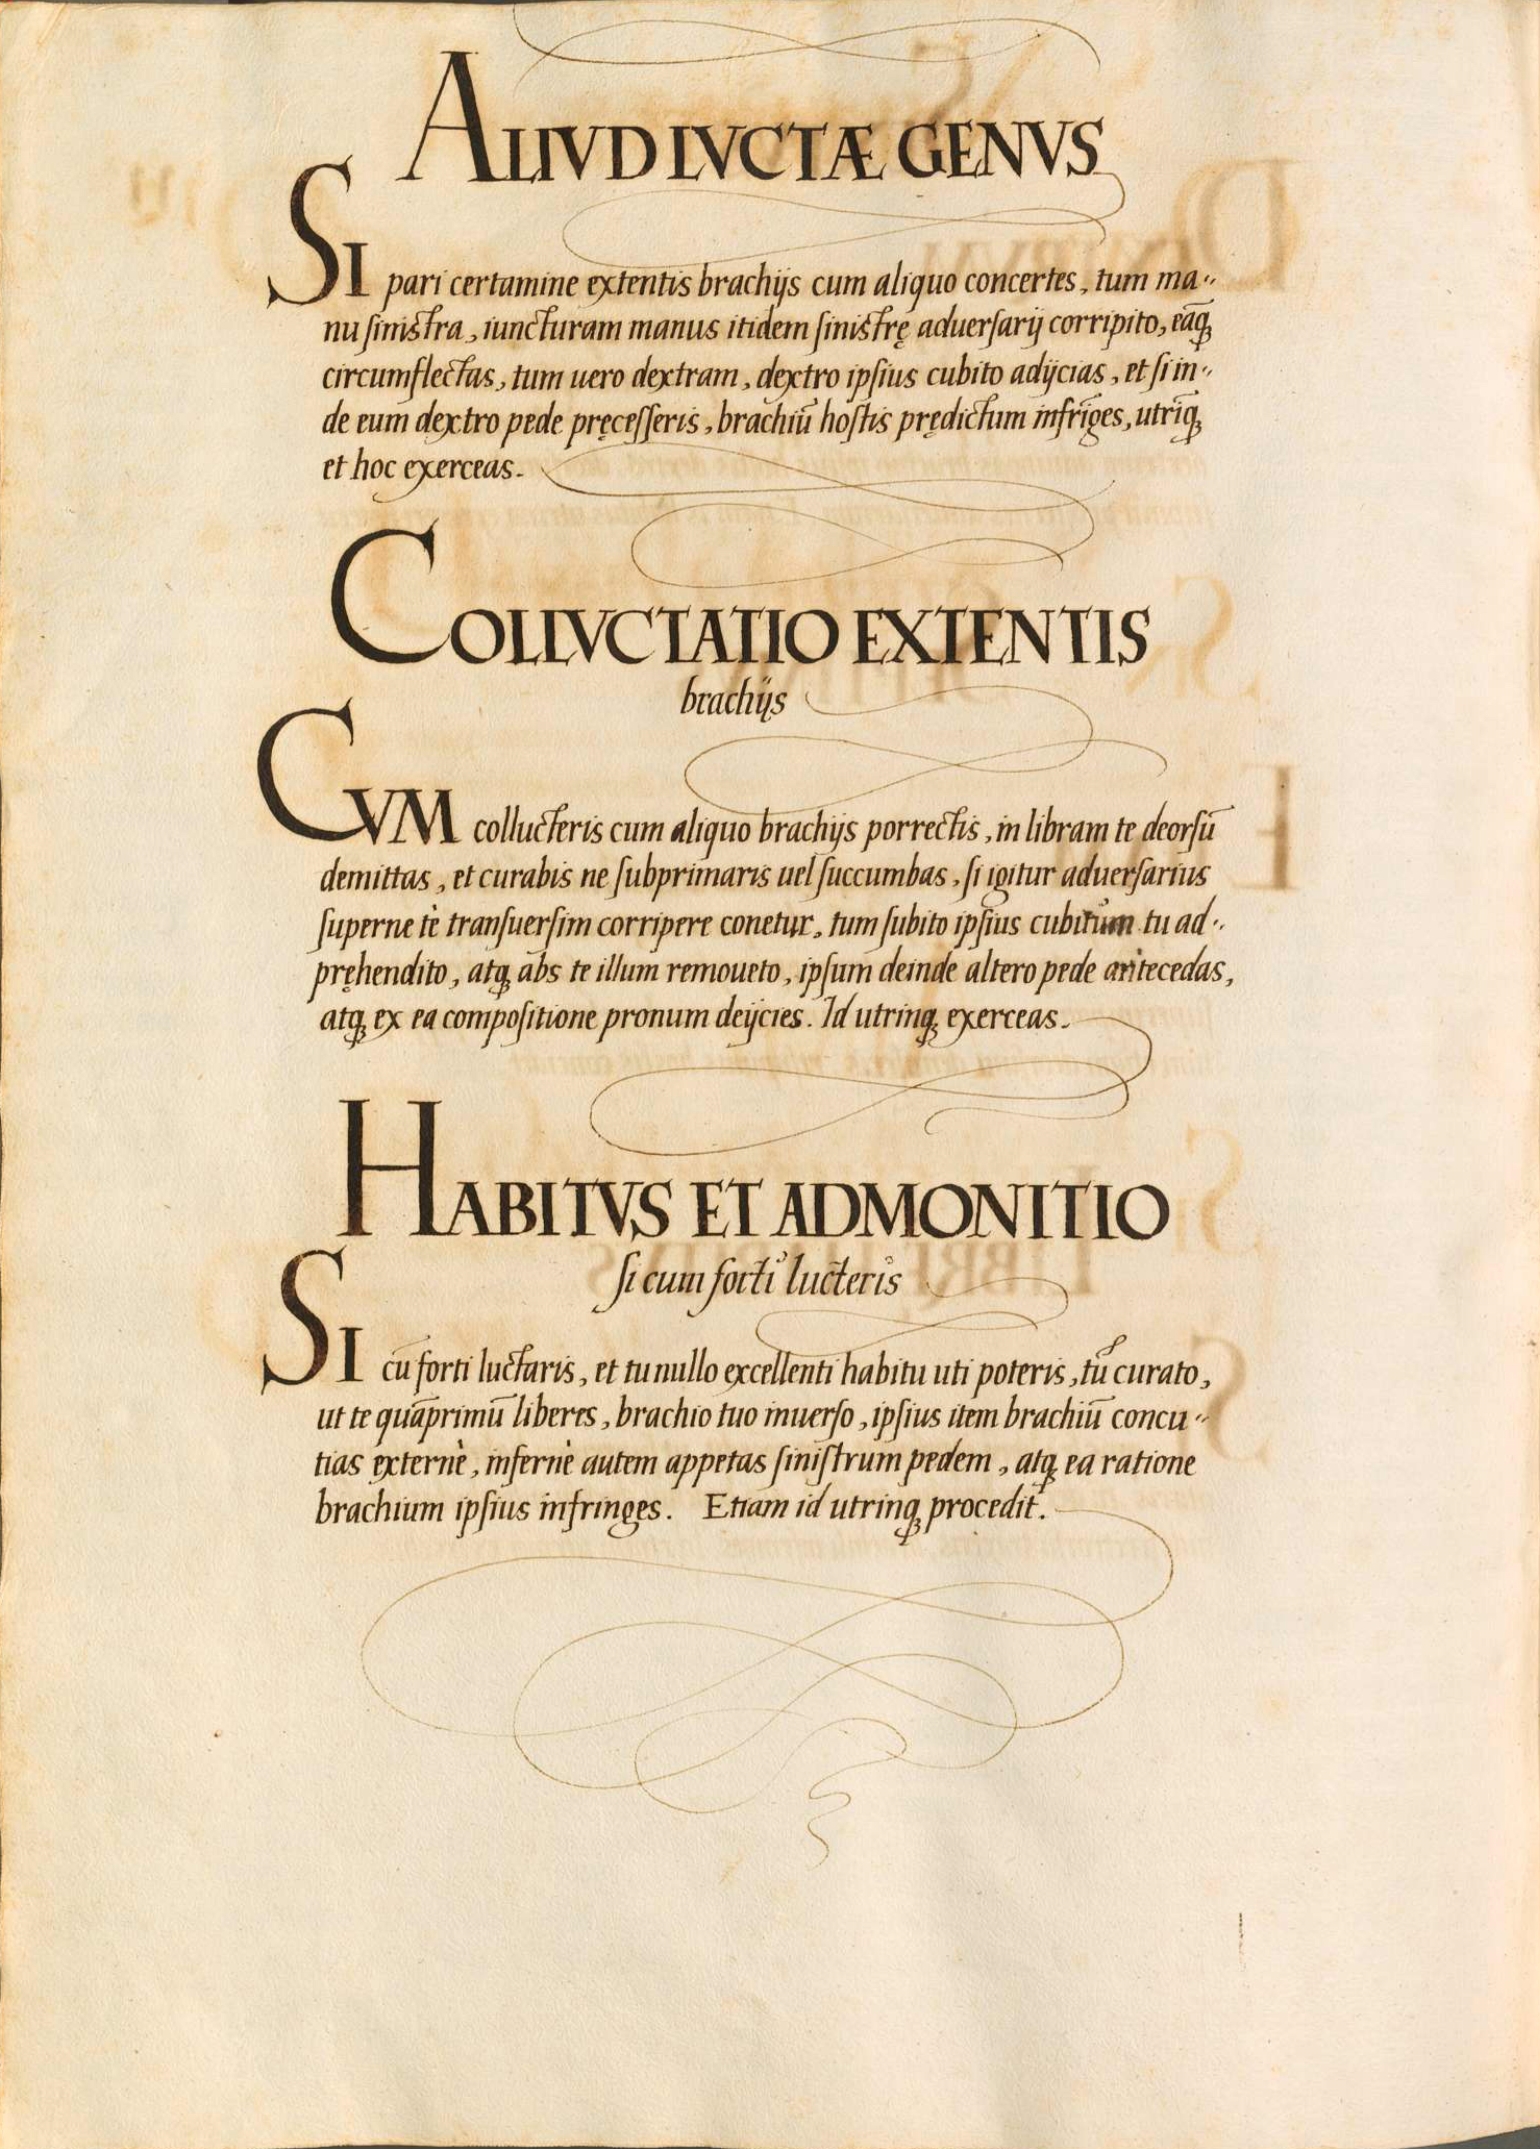 ALIVD LVCTÆ GENVS
SI pari certamine extentis brachijs cum aliquo concertes, tum ma⸗
nu ſiniſtra, iuncturam manus itidem ſiniſtrę aduerſarij corripito, eāq́ꝫ
circumflectas, tum uero dextram, dextro ipſius cubito adijcias, et ſi in⸗
de eum dextro pede pręceſſeris, brachiū hoſtis prędictum infriges, utriq́ꝫ
et hoc exerceas.
COLLVCTATIO EXTENTIS
brachijs
CVM collucteris cum aliquo brachijs porrectis, in libram te deorſū
demittas, et curabis ne ſubprimaris uel ſuccumbas, ſi igitur aduerſarius
ſuperne tè tranſuerſim corripere conetur, tum ſubito ipſius cubitum tu ad⸗
pręhendito, atqꝫ abs te illum remoueto, ipſum deinde altero pede antecedas,
atqꝫ ex ea compoſitione pronum deijcies. Id utrinqꝫ exerceas.
HABITVS ET ADMONITIO
ſi cum forti lucteris
SI cū forti luctaris, et tu nullo excellenti habitu uti poteris, tū curato,
ut te quāprimū liberes, brachio tuo inuerſo, ipſius item brachiū concu⸗
tias externè, infernè autem appetas ſiniſtrum pedem, atqꝫ ea ratione
brachium ipſius infringes. Etiam id utrinqꝫ procedit.